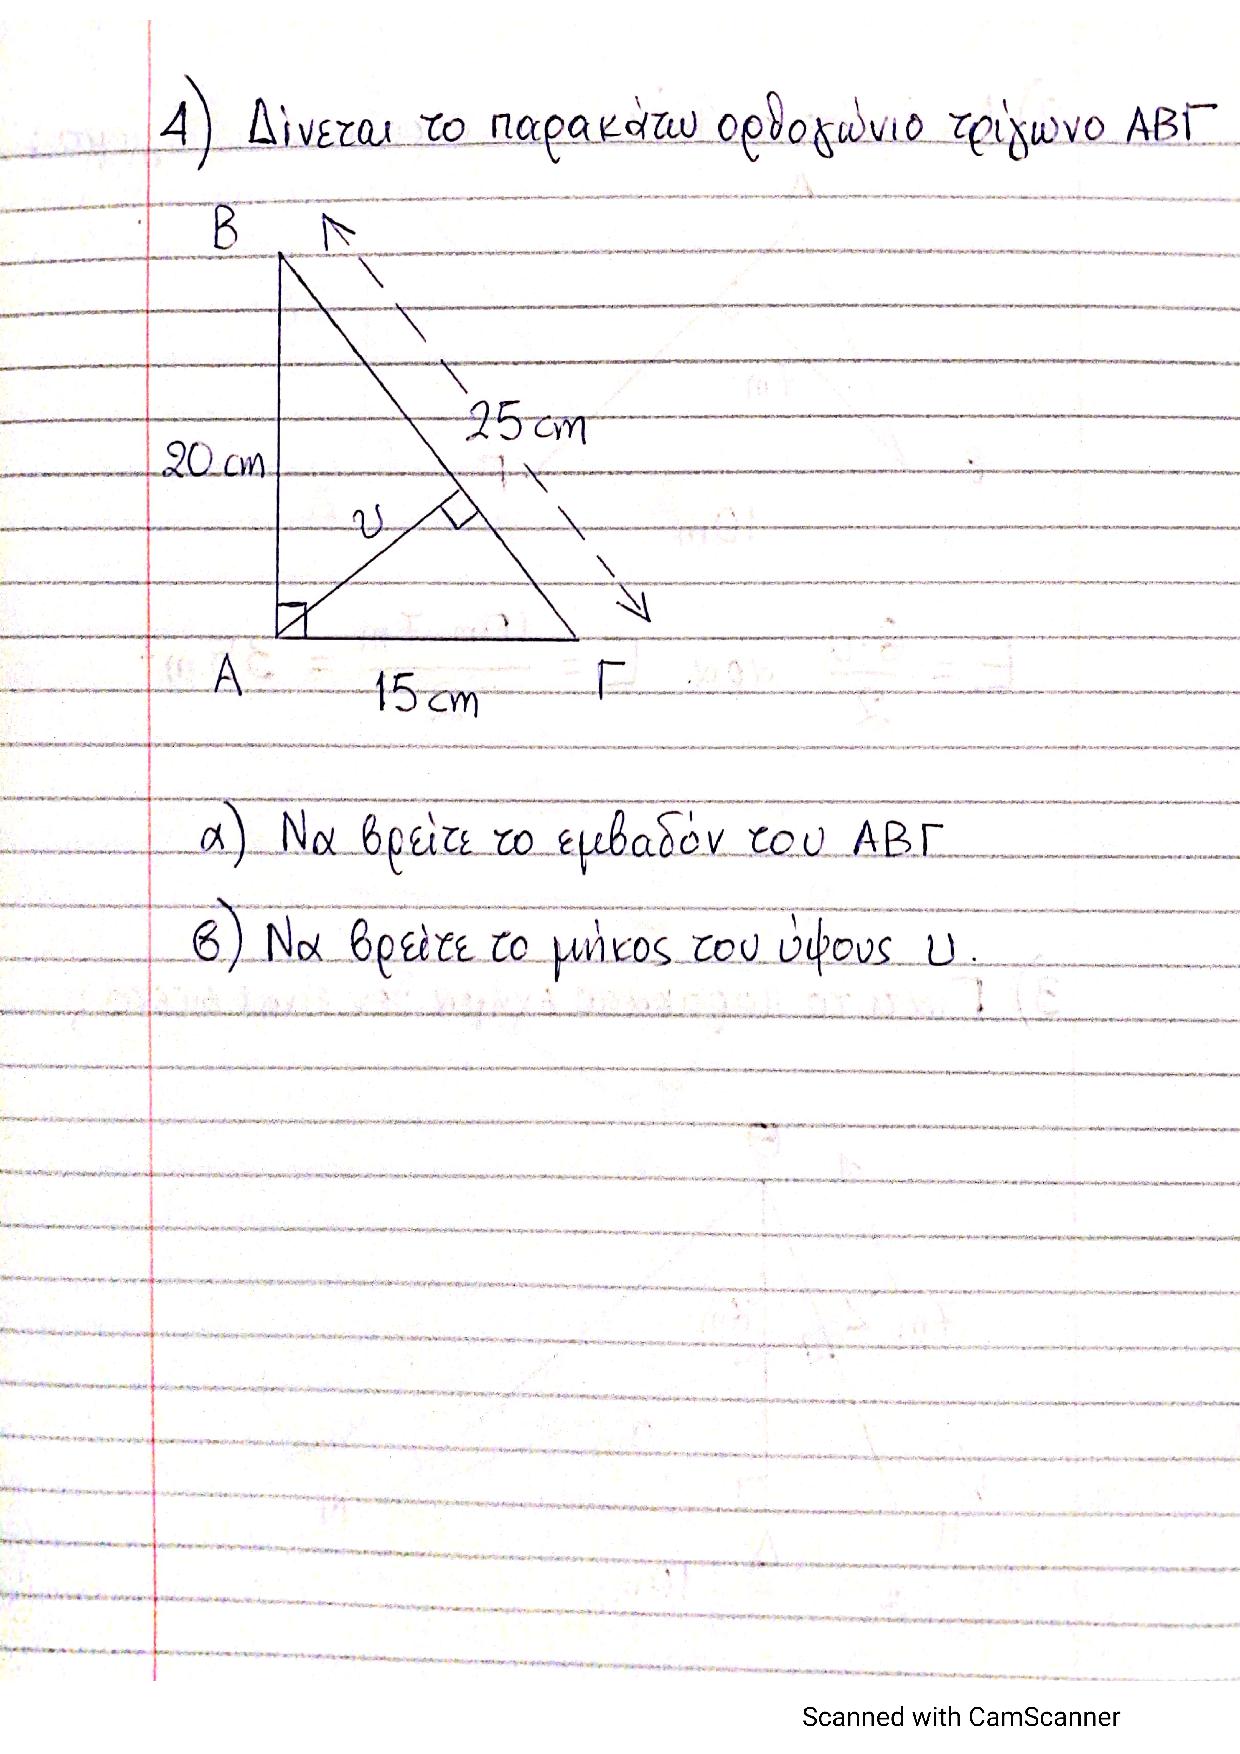 4) Δίνεται το παρακάτω ορθογώνιο τρίγωνο ΑΒΓ
Β
25 cm
20 cm
υ
Α
Γ
15 cm
α) Να βρείτε το εμβαδόν του ΑΒΓ
β) Να βρείτε το μήκος του ύψους υ.
Scanned with CamScanner